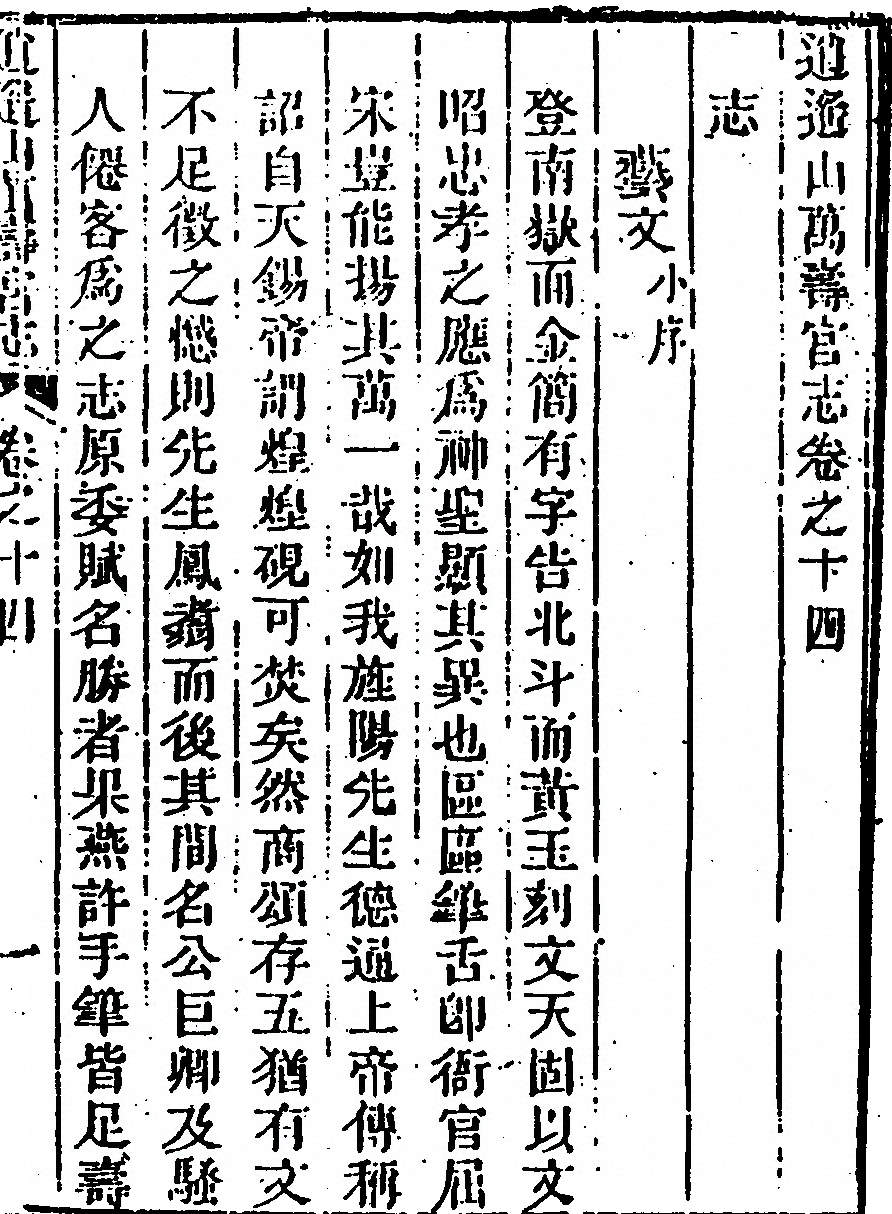 逍遙山萬壽宮志卷之十四
志
藝文小序
登南嶽而金簡有字告北斗而黃玉刻文天固以文
昭忠孝之應爲神聖顯其異也區區錐舌卽衙官屈
宋豈能揚其萬一哉如我旌陽先生德通上帝傳稱
詔自天錫帝謂煌煌硯可焚矣然商頌存五猶有文
不足徵之憾則先生鳳翥而後其間名公巨卿及騷
人僊客爲之志原委賦名勝者果燕許手筆皆足壽
逍遙山萬壽宮志 卷之十四 一